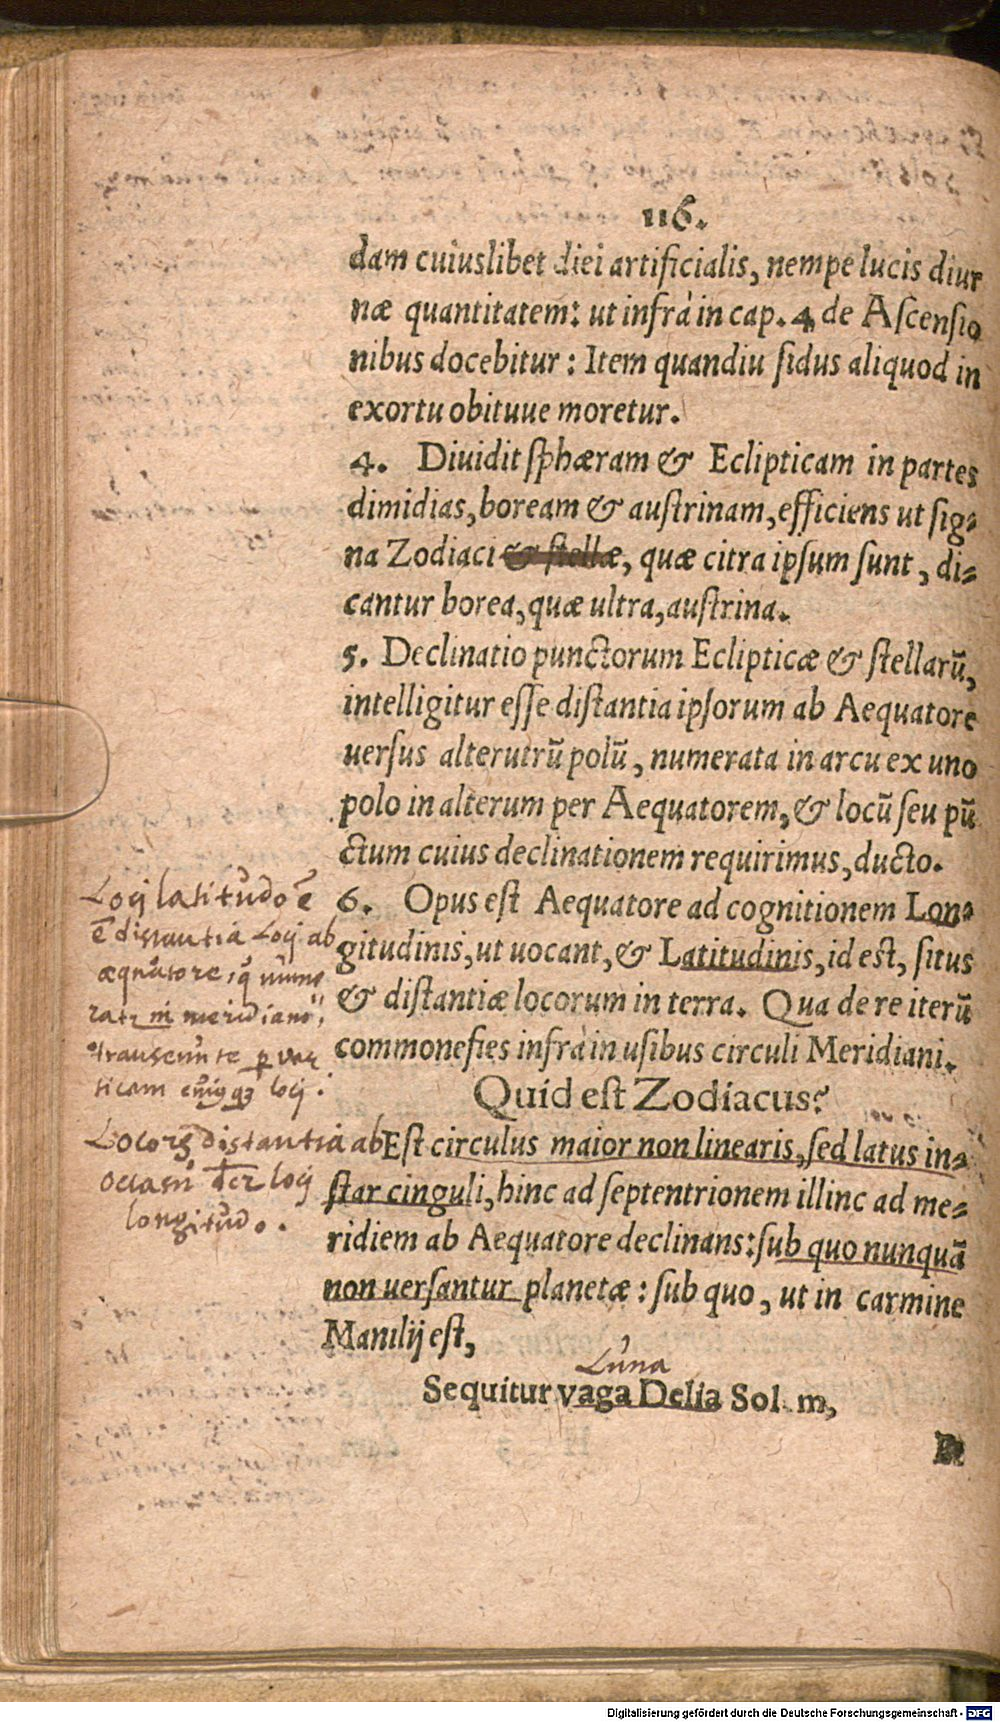 116.
dam cuiuslibet diei artificialis, nempe lucis diur
næ quantitatem: ut infrà in cap. 4 de Ascensio
nibus docebitur : Item quandiu sidus aliquod in
exortu obituue moretur.
4. Diuidit sphæram & Eclipticam in partes
dimidias, boream & austrinam, efficiens ut sig-
na Zodiaci & stellæ, quæ citra ipsum sunt, di-
cantur borea, quæ ultra, austrina.
5. Declinatio punctorum Eclipticæ & stellarū,
intelligitur esse distantia ipsorum ab Aequatore
uersus alterutrū polū, numerata in arcu ex uno
polo in alterum per Aequatorem, & locū seu pū
ctum cuius declinationem requirimus, ducto.
6. Opus est Aequatore ad cognitionem Lon-
gitudinis, ut uocant, & Latitudinis, id est, situs
& distantiæ locorum in terra. Qua de re iterū
commonefies infrà in usibus circuli Meridiani.
Locij latitudo ē
ē distantia Locj ab
æquatore, q nume
ratz in meridiano,
transeunte p ver
ticem locj.
Quid est Zodiacus?
Est circulus maior non linearis, sed latus in-
star cinguli, hinc ad septentrionem illinc ad me-
ridiem ab Aequatore declinans: sub quo nunquā
non uersantur planetæ : sub quo, ut in carmine
Manilij est,
distantia ab
locj
longitudo.
Luna
Sequitur vaga Delia Sol m,